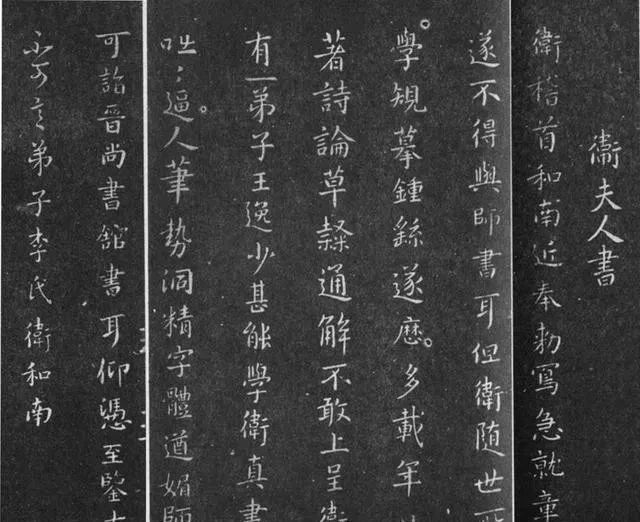 衞夫人書
衛稽首和南近奉勅寫急就章
遂不得與師書耳但衛隨世所
學規摹鍾繇遂歷多載年
著詩論草隸通解不敢上呈衛
有一弟子王逸少甚能學衛真書
咄〻逼人筆勢洞精字體遒媚師
可詣晉尚書館書耳仰憑至鑒大
不可言弟子李氏衛和南